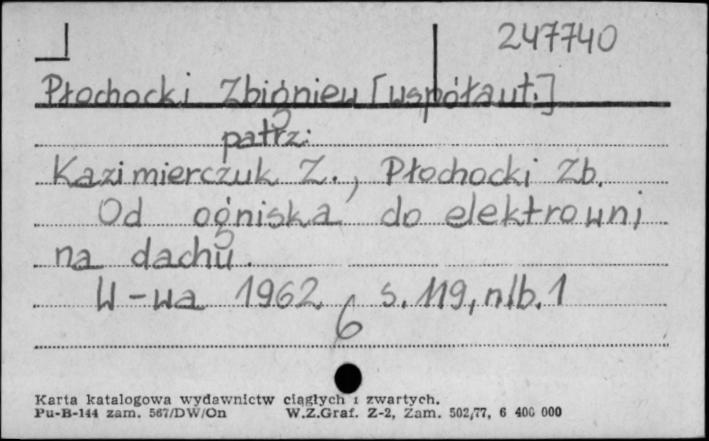 247740
Płochocki Zbigniew [współaut.]
patrz:
Kazimierczuk Z., Płochocki Zb.
Od ogniska do elektrowni
na dachu.
W-wa 1962. s. 119, nlb. 1
6
Karta katalogowa wydawnictw ciągłych i zwartych.
Pu-B-144 zam. 567/DW/On W.Z.Graf. Z-2, Zam. 502/77, 6 400 000